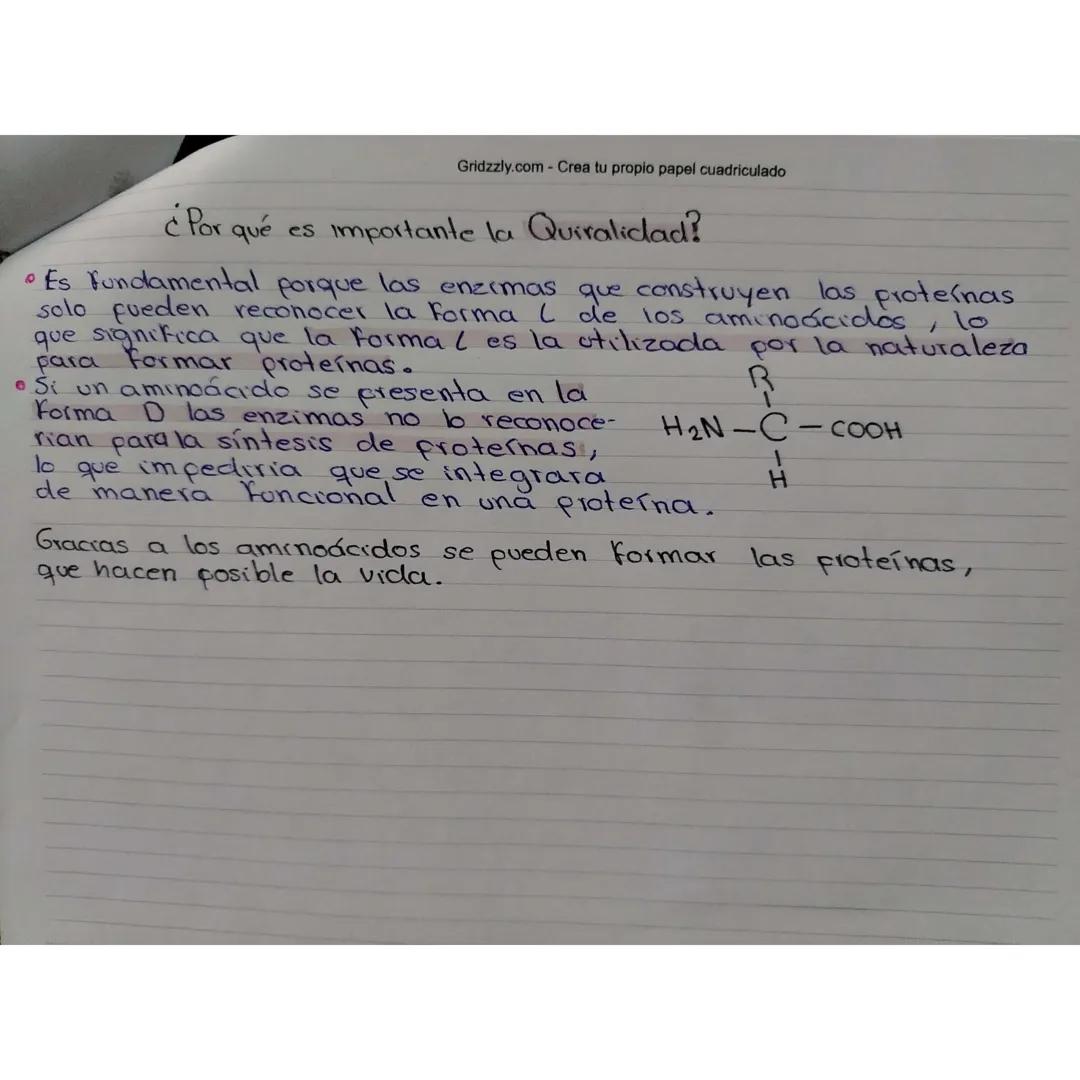 Gridzzly.com - Crea tu propio papel cuadriculado
¿Por qué es importante la Quiralidad?
• Es fundamental porque las enzimas que construyen las proteínas
solo pueden reconocer la forma L de los aminoácidos, lo
que significa que la forma L es la utilizada por la naturaleza
para formar proteínas.
• Si un aminoácido se presenta en la
forma D las enzimas no lo reconoce-
rian para la síntesis de proteínas,
lo que impediría que se integrara
de manera funcional en una proteína.
R
H₂N-C-COOH
H
Gracias a los aminoácidos se pueden formar las proteínas,
que hacen posible la vida.